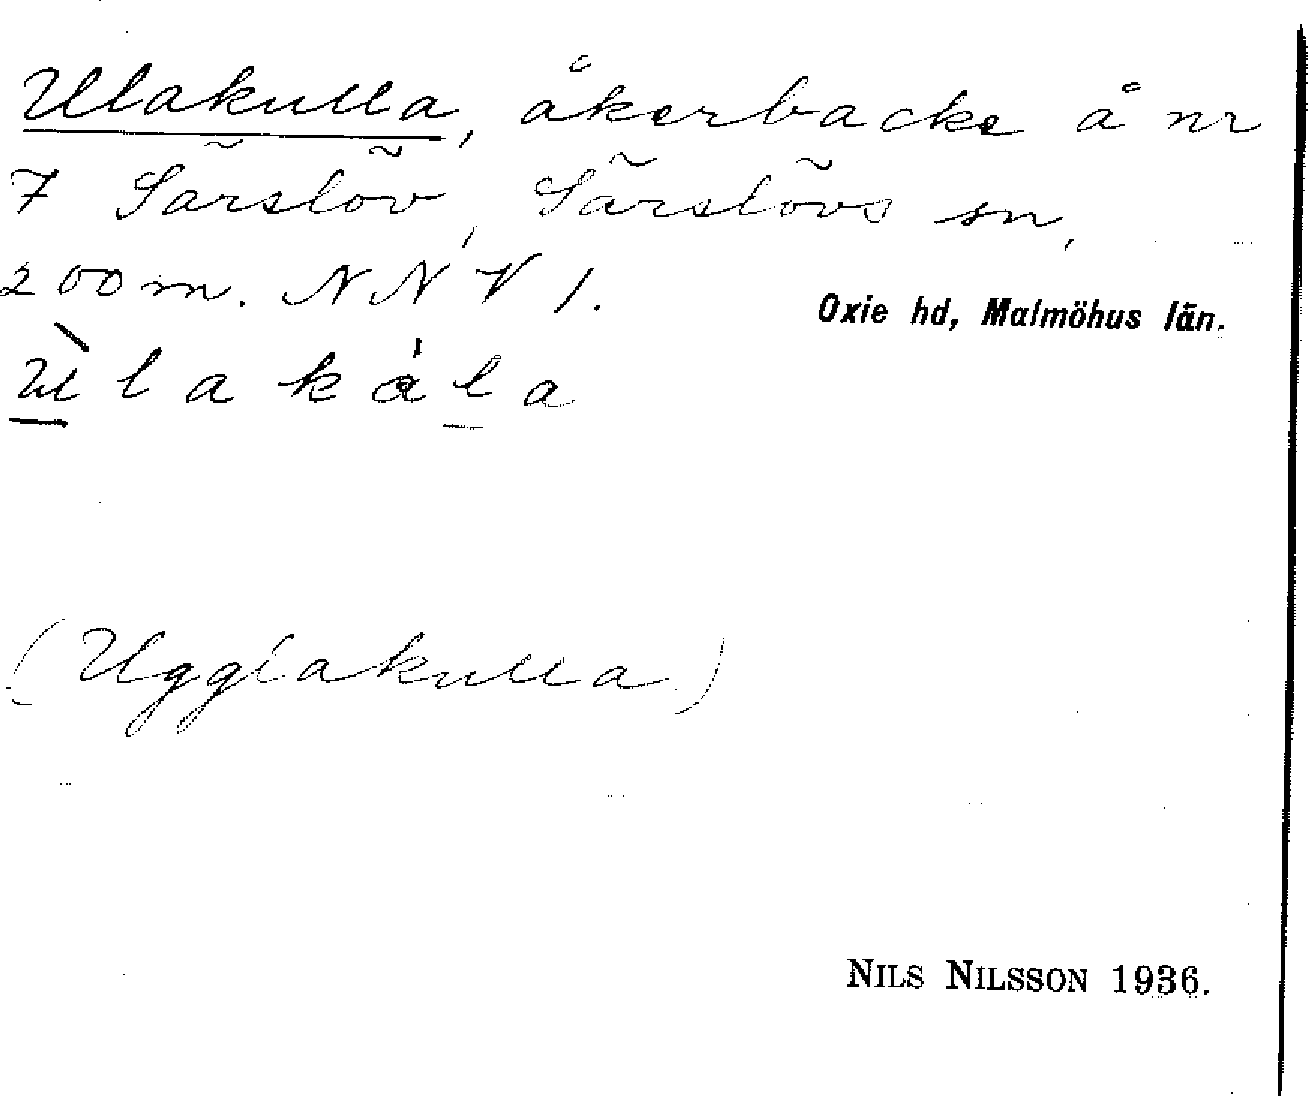 Ulakulla, åkerbacke å nr
7 Särslöv, Särslövs sn,
200 m. NNV 1.
Oxie hd, Malmöhus län.
(Ugglakulla)
NILS NILSSON 1936.